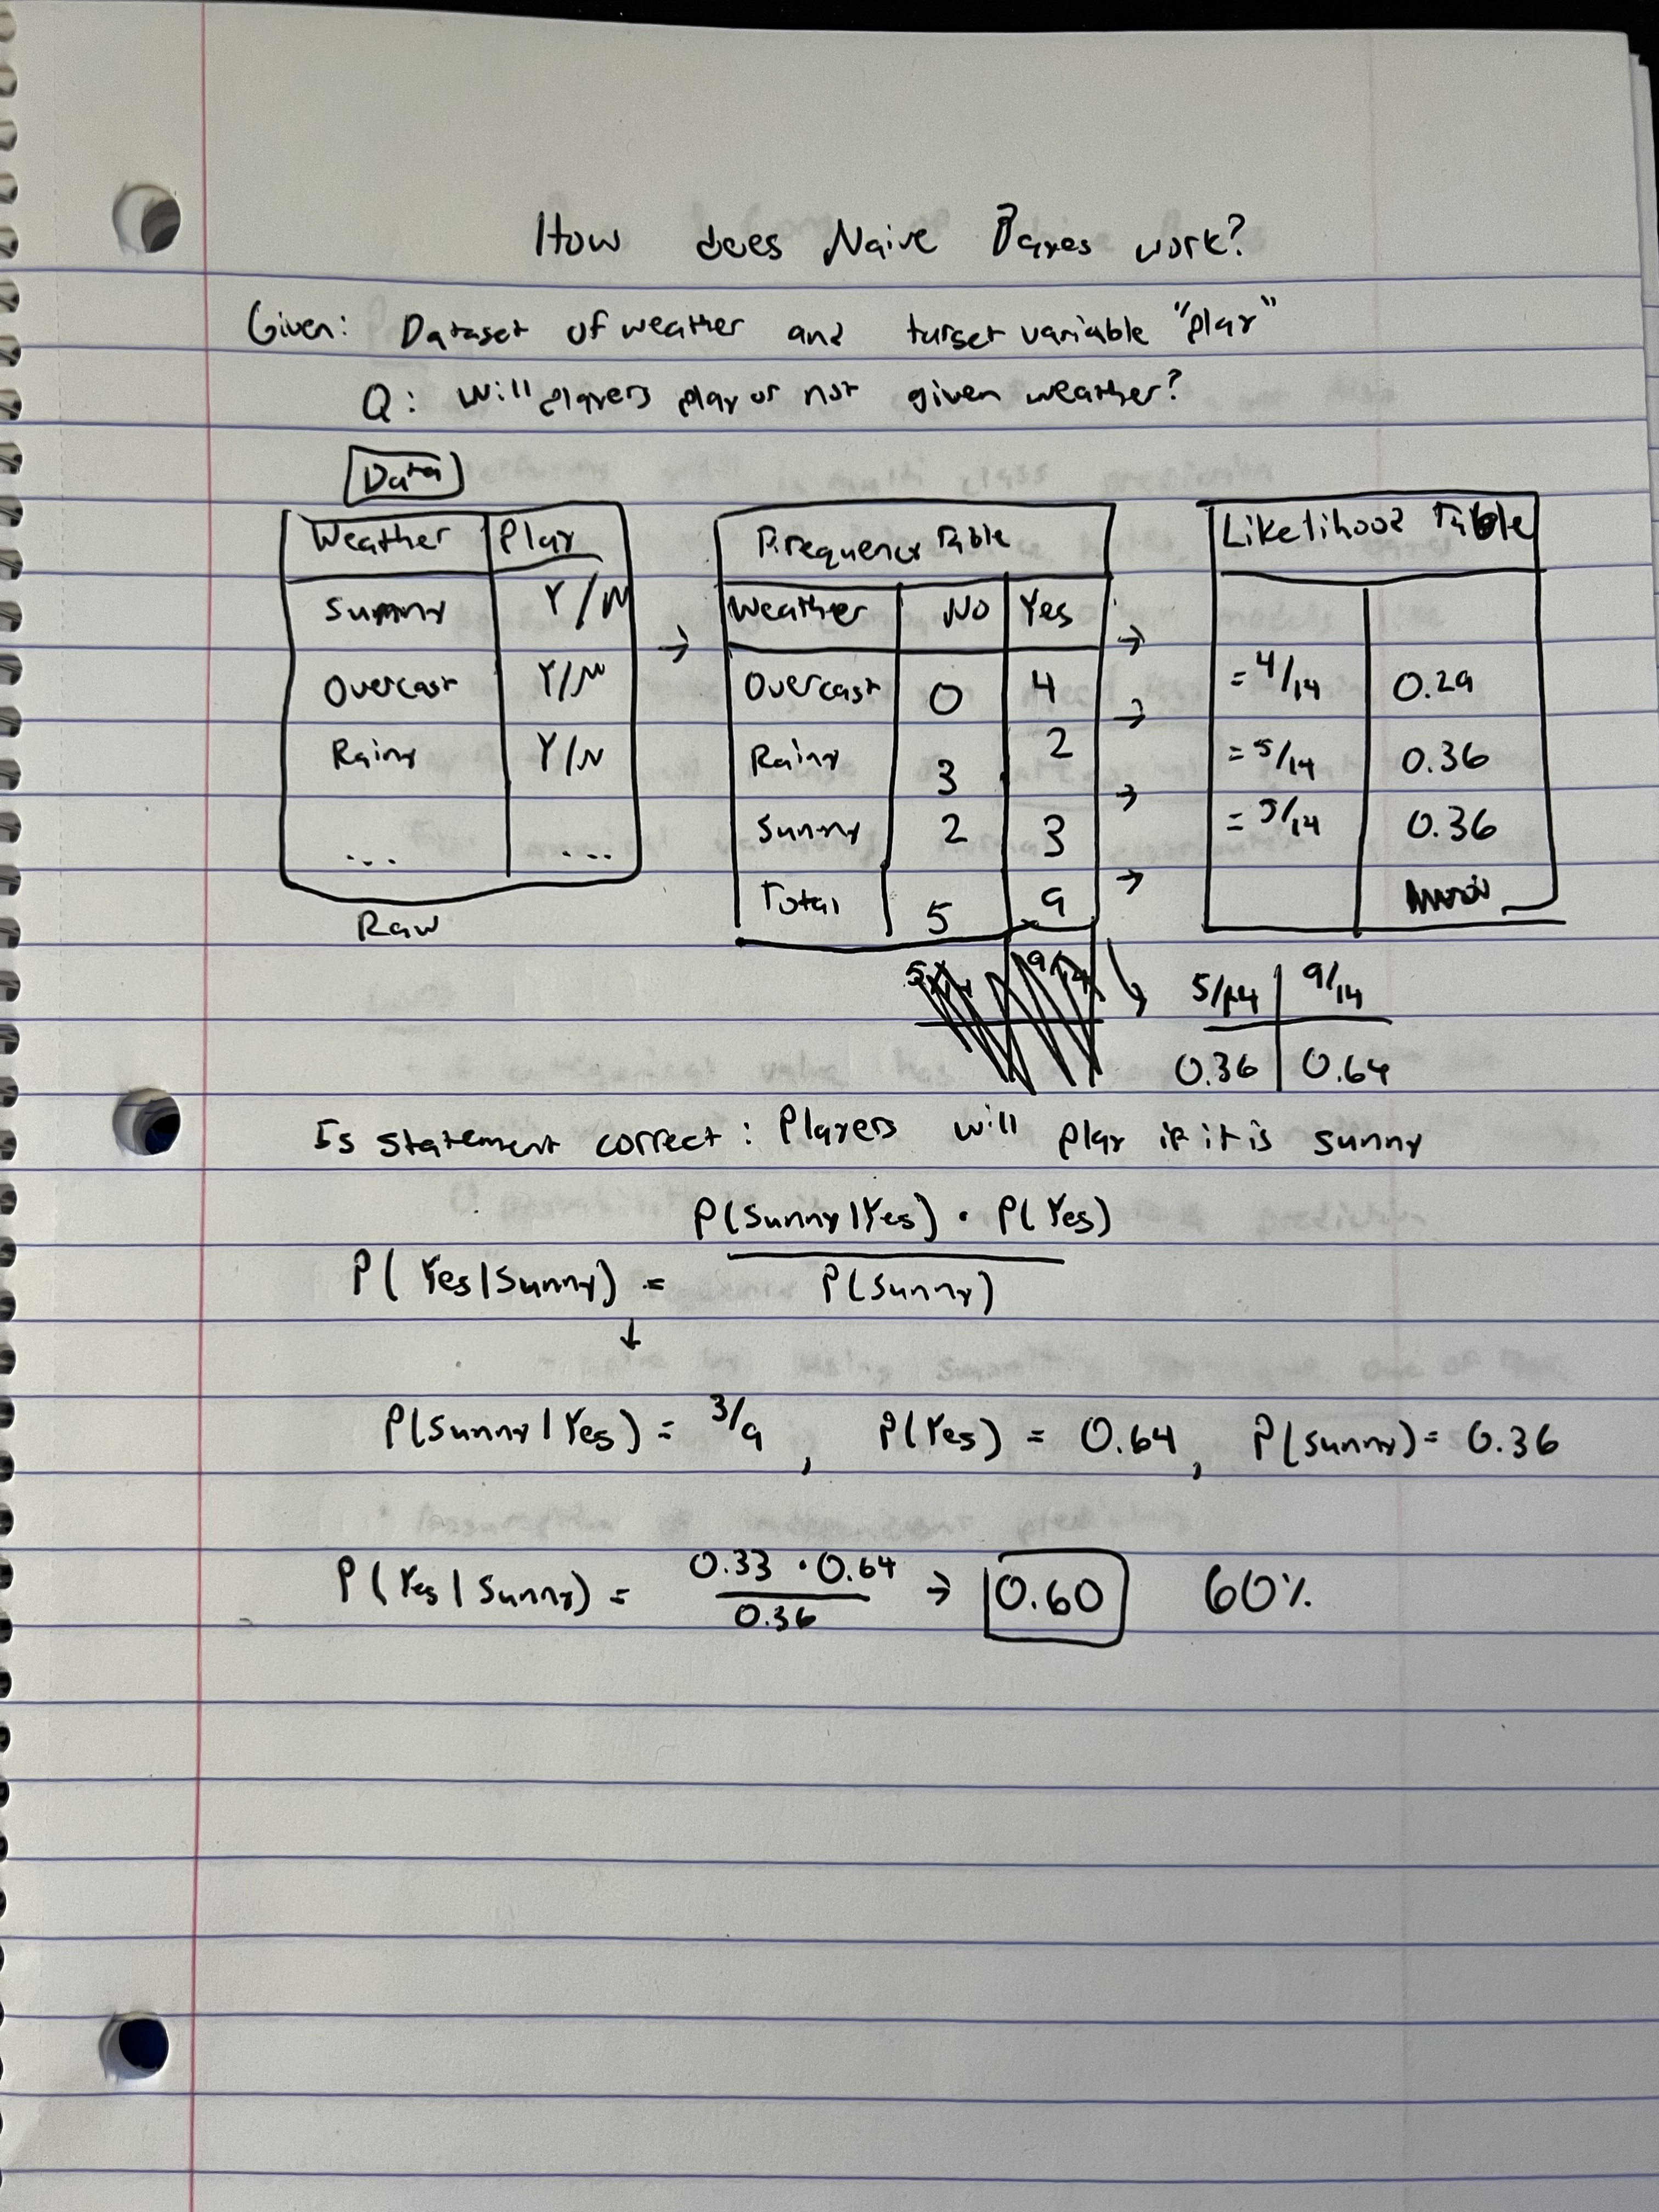 How does Naive Bayes work?
Given: Dataset of weather and target variable "play"
Q: Will players play or not given weather?
Data
Weather Play
Sunny Y/N
Overcast Y/N
Rainy Y/N
... ...
Raw
→
Frequency Table
Weather No Yes
Overcast 0 4
Rainy 3 2
Sunny 2 3
Total 5 9
→
→
→
→
Likelihood Table
= 4/14 0.29
= 5/14 0.36
= 5/14 0.36
5/14 9/14
0.36 0.64
Is statement correct: Players will play if it is sunny
P(Yes|Sunny) = P(Sunny|Yes) · P(Yes) / P(Sunny)
↓
P(Sunny|Yes) = 3/9, P(Yes) = 0.64, P(Sunny) = 0.36
P(Yes|Sunny) = 0.33 · 0.64 / 0.36 → 0.60 60%